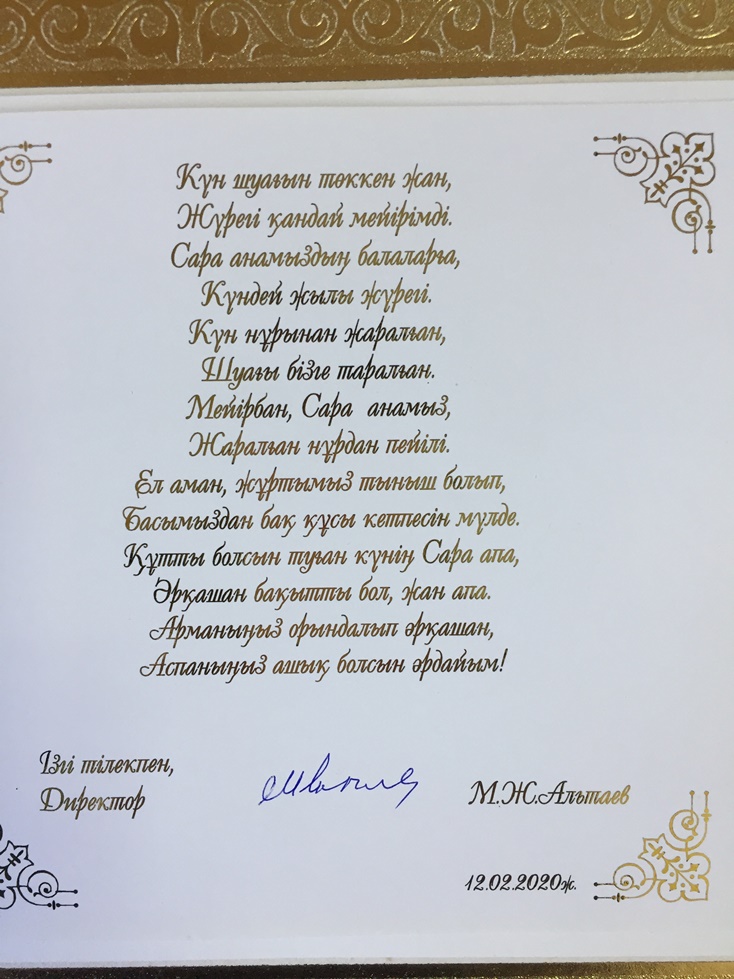 Күн шуағын төккен жан,
Жүрегі қандай мейірімді.
Сара анамыздың балаларға,
Күндей жылы жүрегі.
Күн нұрынан жаралған,
Шуағы бізге таралған.
Мейірбан, Сара анамыз,
Жаралған нұрдан пейілі.
Ел аман, жұртымыз тыныш болып,
Басымыздан бақ құсы кетпесін мүлде.
Құтты болсын туған күнің Сара апа,
Әрқашан бақытты бол, жан апа.
Арманыңыз орындалып әрқашан,
Аспаныңыз ашық болсын әрдайым!
Ізгі тілекпен,
Директор М.Ж.Альтаев
12.02.2020ж.